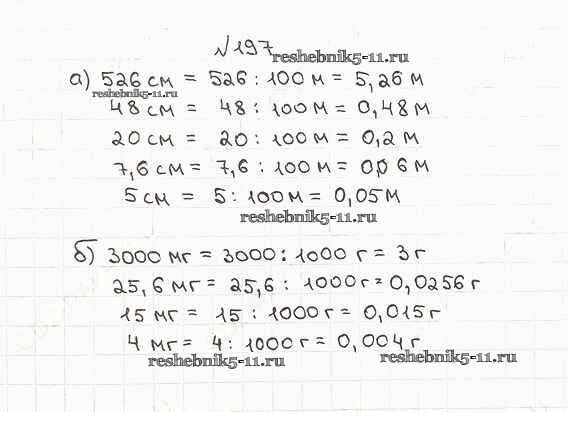 №197
reshebnik5-11.ru
а) 526 см = 526 : 100 м = 5,26 м
reshebnik5-11.ru
48 см = 48 : 100 м = 0,48 м
20 см = 20 : 100 м = 0,2 м
7,6 см = 7,6 : 100 м = 0,0 6 м
5 см = 5 : 100 м = 0,05 м
reshebnik5-11.ru
б) 3000 мг = 3000 : 1000 г = 3 г
25,6 мг = 25,6 : 1000 г = 0,0256 г
15 мг = 15 : 1000 г = 0,015 г
4 мг = 4 : 1000 г = 0,004 г
reshebnik5-11.ru
reshebnik5-11.ru